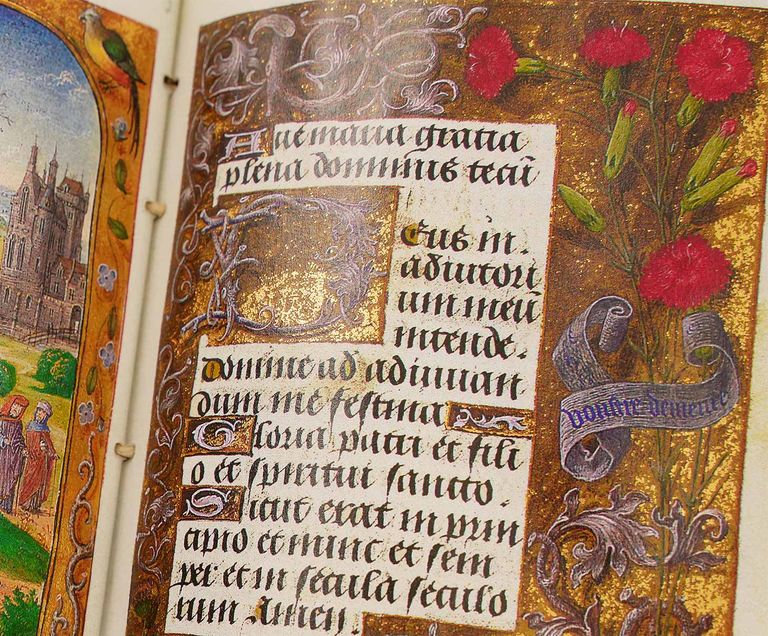 Aue maria gratia
plena dominus tecū
Deus in
adiutori
um meū
intende.
Domine ad adiuuan
dum me festina
Gloria patri et fili
o et spiritui sancto.
Sicut erat in prin
cipio et nunc et sem
per et in secula seculo
rum Amen.
voustre demeure